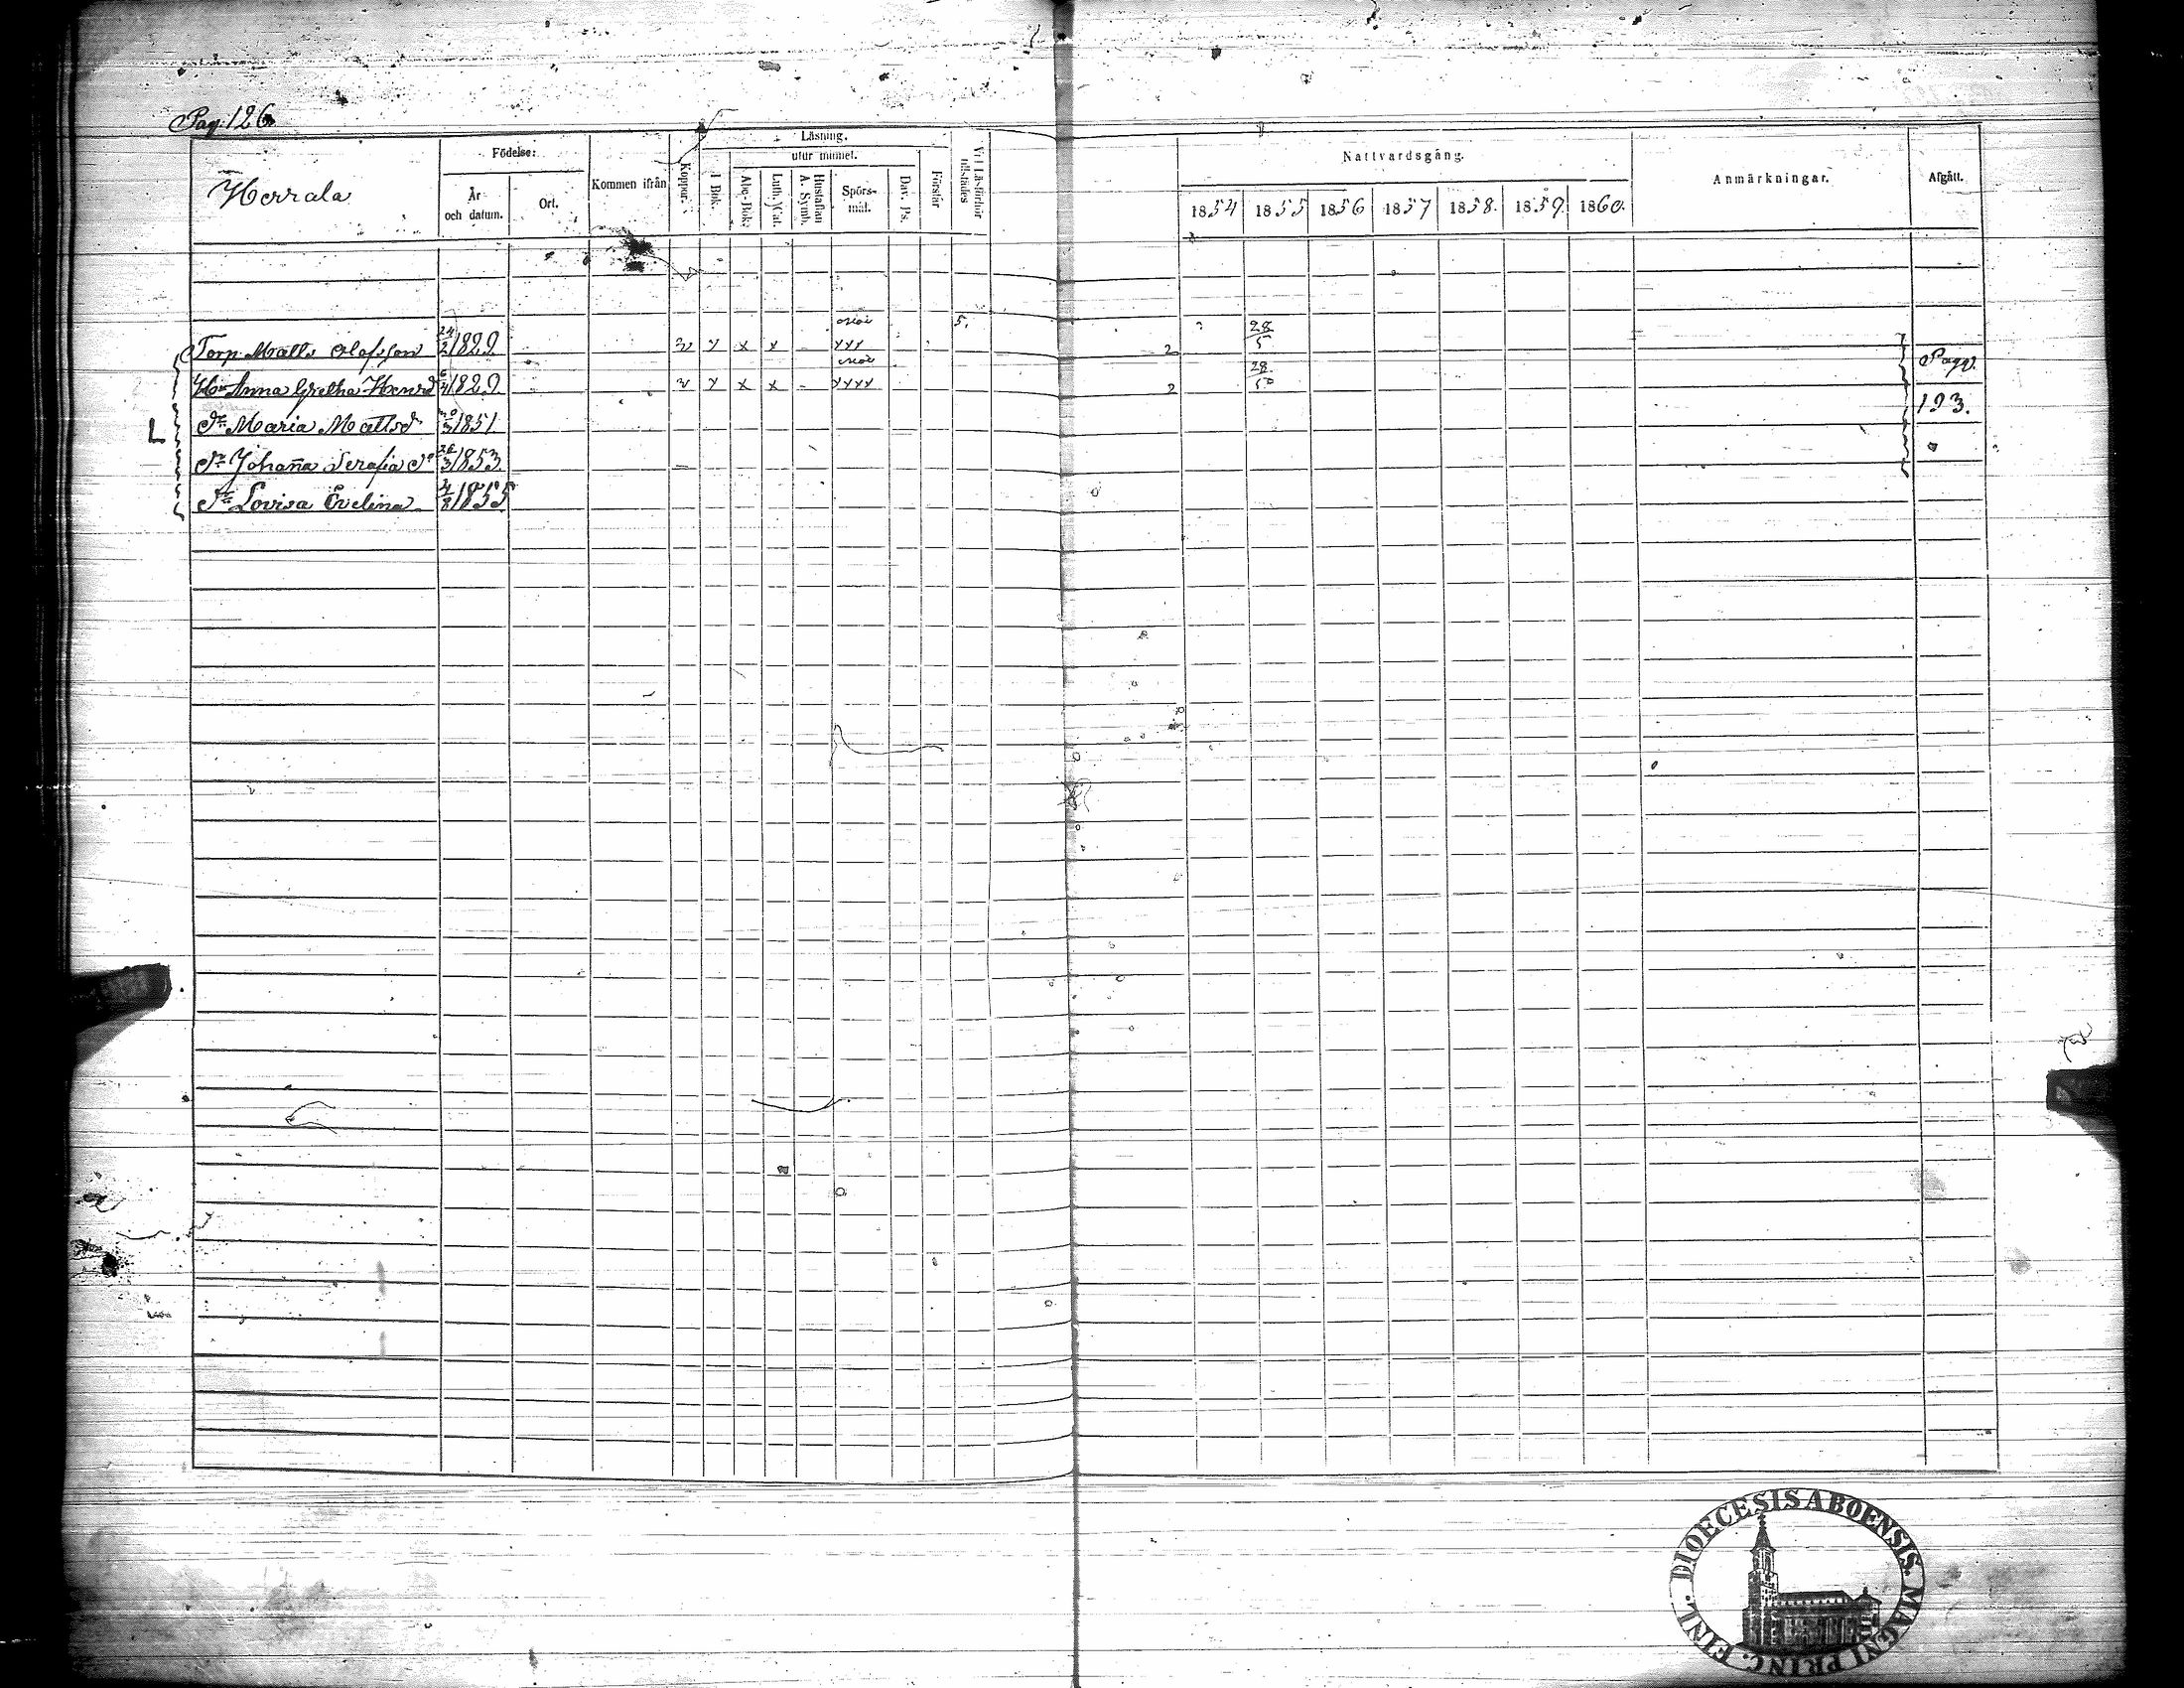 Pag. 126
Herrala
Födelse:
År och datum.
Ort.
Kommen ifrån
Koppor.
Läsning.
I Bok.
utur minnet.
Abc-Bok.
Luth. Cat.
Hustaflan A. Symb.
Spörs-mål.
Dav. Ps.
Förstår
Vid Läsförhör tillstädes
Nattvardsgång.
1854 1855 1856 1857 1858. 1859. 1860.
Anmärkningar.
Afgått.
5.
Torp. Matts Olofsson 24/2 1829. v y x x xxx 2 28/5
Hu Anna Gretha Henrd 6/4 1829. v y x x xxxx 2 28/5 Pag.
Dr Maria Mattsd 1851. 193.
L
Dr Johaña Serafia Do 3 1853.
Dr Lovisa Evelina 4/8 1855
DIOECESIS ABOENSIS. MAGNI PRINC. FINL.